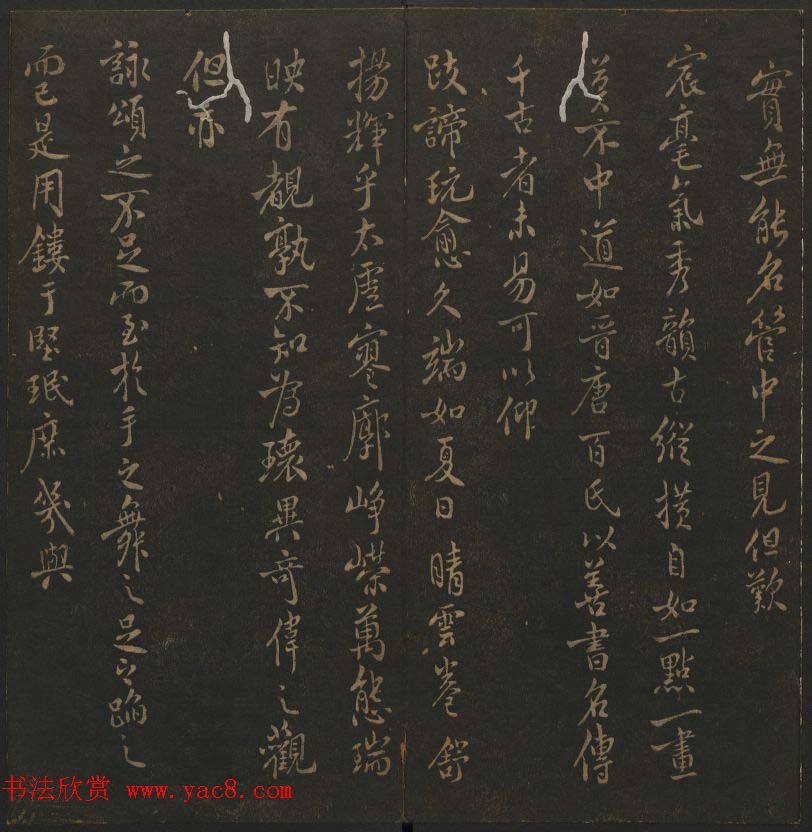 實無能名管中之見但歎
宸毫氣秀韻古縱横自如一點一畫
莫不中道如晉唐百氏以善書名傳
千古者未易可以仰
跂諦玩愈久端如夏日晴雲卷舒
揚輝乎太虛寥廓崢嶸萬態瑞
映有覩孰不知為瓌異奇偉之觀
但亦
詠頌之不足而至於手之舞之足之蹈之
而已是用鏤于堅珉庶幾與
书法欣赏 www.yac8.com